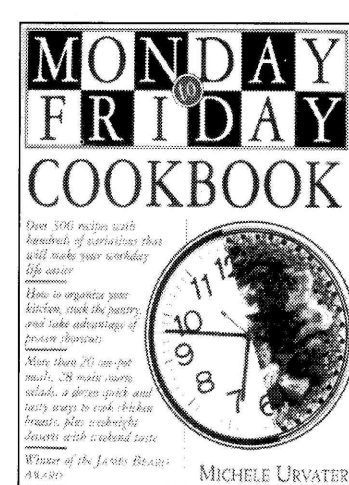 MONDAY
TO
FRIDAY
COOKBOOK
Over 300 recipes with
hundreds of variations that
will make your workday
life easier
How to organize your
kitchen, stock the pantry,
and take advantage of
proven shortcuts
More than 20 one-pot
meals, 28 main course
salads, a dozen quick and
tasty ways to cook chicken
breasts, plus weeknight
desserts with weekend taste
Winner of the JAMES BEARD
AWARD
12
11
10
9
8
7
6
MICHELE URVATER